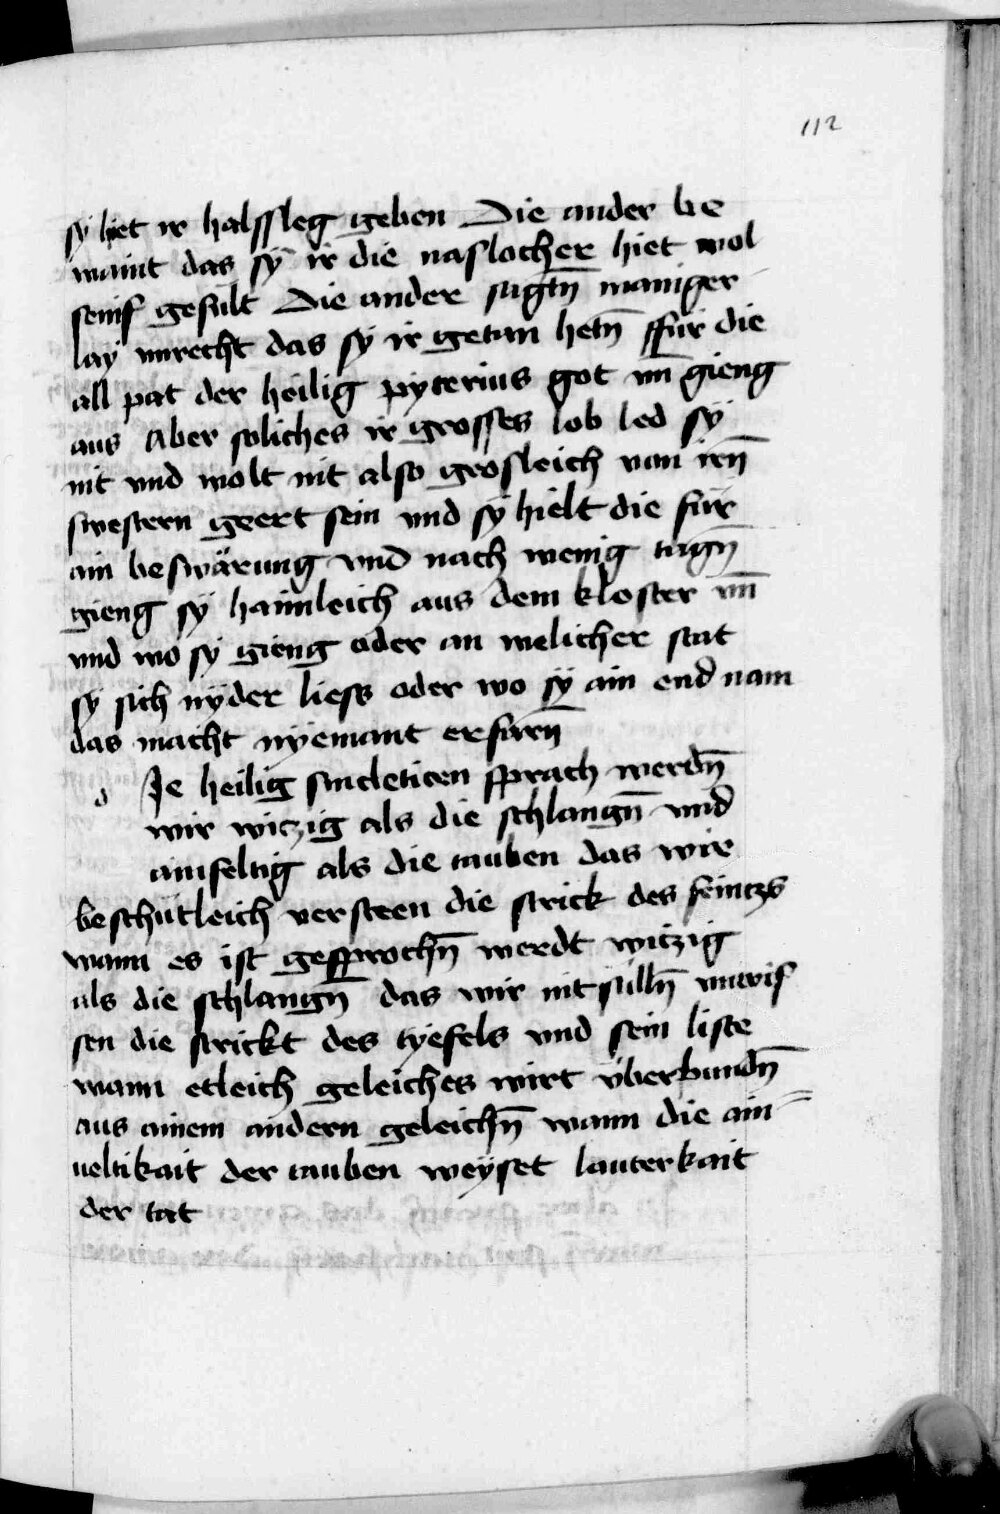 112
sÿ hiet ir halssleg geben Die ander be
waint das sÿ ir die naslocher hiet wol
senif gefült Die ander sagtn̄ maniger
lay vnrecht das sÿ ir getan hetn̄ ffür die
all pat der heilig pyterius got vn̄ gieng
aus Aber soliches ir grosses lob led sÿ
nit vnd wolt nit also grosleich van irn̄
swestern geert sein vnd sÿ hielt die für
ain beswärung vnd nach wenig tagn̄
gieng sÿ haimleich aus dem kloster vn̄
vnd wo sÿ gieng oder an welicher stat
sÿ sich nÿder liess oder wo sÿ ain end nam
das macht nÿemant erfarn̄
d Je heilig sincleticen sprach werdn̄
wir witzig als die schlangn̄ vnd
ainfeltig als die tauben das wir
beschütleich versteen die strick des feintzs
wann es ist gesprochn̄ werdt witzig
als die schlangn̄ das wir nit sülln̄ vnwis
sen die strickt des tyefels vnd sein liste
wann etleich geleiches wirt vberbundn̄
aus ainem andern geleichn̄ wann die ain
ueltikait der tauben weÿset lauterkait
der tat